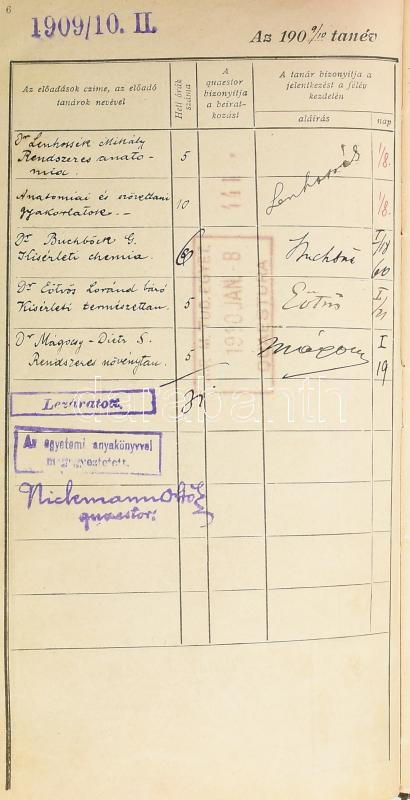 6
1909/10. II.
Az 190 9/10 tanév
Az előadások czime, az előadó tanárok nevével
Heti órák száma
A quaestor bizonyitja a beiratkozást
A tanár bizonyitja a jelentkezést a félév kezdetén
aláírás
nap
Dr Lenhossék Mihály
Rendszeres anato-
mia.
5
Lenhossék
1/8.
Anatomiai és szövettani
gyakorlatok. —
10
1/8.
Dr Buchböck G.
Kisérleti chemia.
Buchböck
I/18
Dr Eötvös Loránd báró
Kisérleti természettan.
5
Eötvös
I/21
Dr Mágocsy-Dietz S.
Rendszeres növénytan.
5
Mágocsy
I
19
1910 JAN. 8
QUAESTURA
Lezáratott.
31
Az egyetemi anyakönyvvel
megegyeztetett.
quaestor.
darabanth